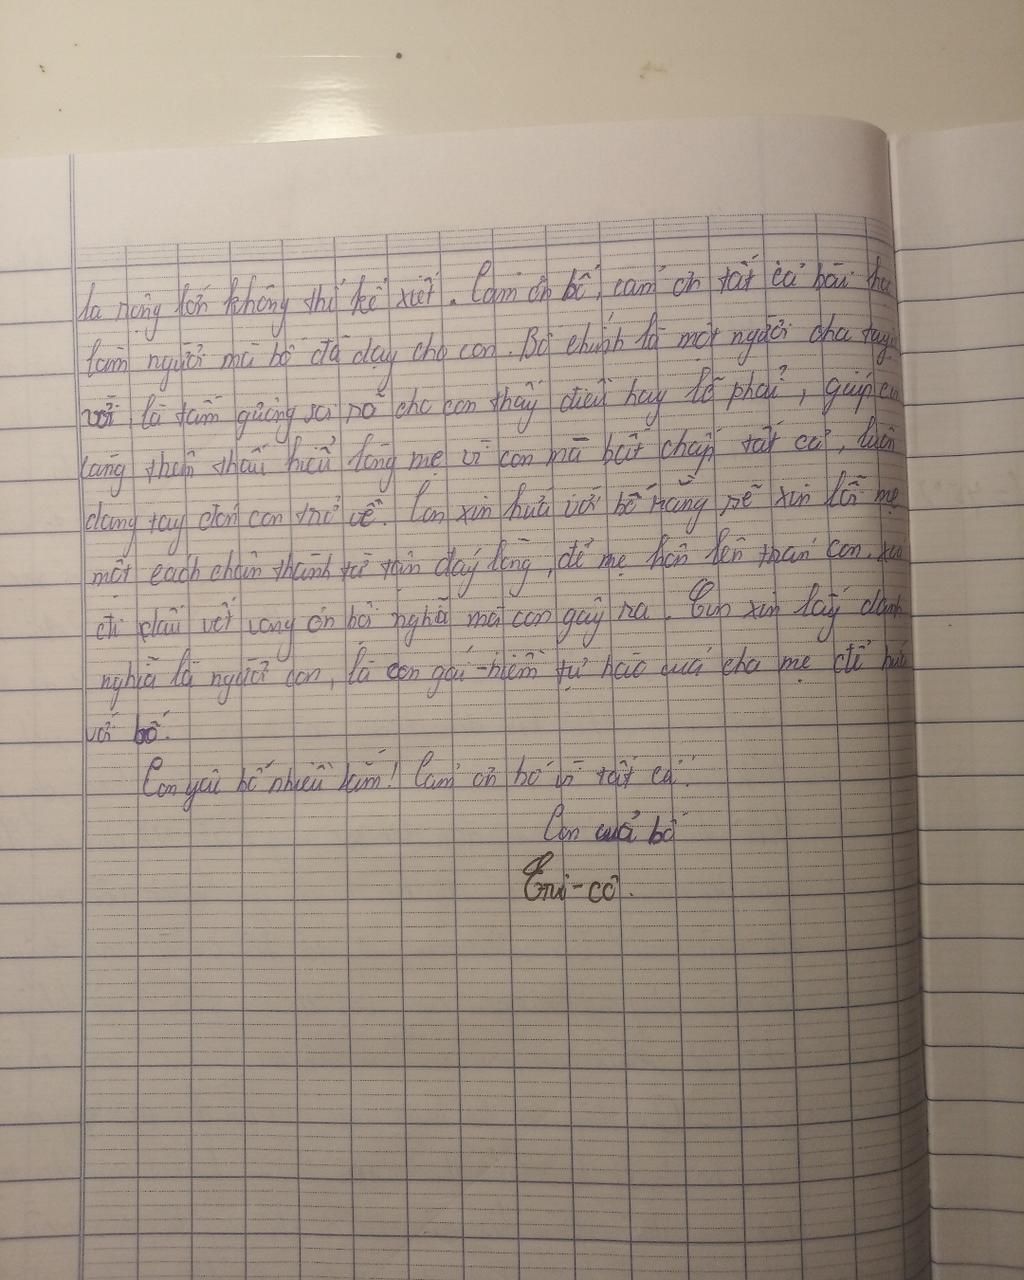 là rộng lớn không thể kể xiết. Cảm ơn bố, cảm ơn tất cả bài học
làm người mà bố đã dạy cho con. Bố chính là một người cha tuyệt
vời, là tấm gương soi rõ cho con thấy điều hay lẽ phải, giúp con
càng thêm thấu hiểu lòng mẹ vì con mà bất chấp tất cả, luôn
dang tay đón con trở về. Con xin hứa với bố rằng sẽ xin lỗi mẹ
một cách chân thành từ tận đáy lòng, để mẹ hôn lên trán con, xoá
đi dấu vết vong ơn bội nghĩa mà con gây ra. Con xin lấy danh
nghĩa là người con, là con gái - niềm tự hào của cha mẹ để hứa
với bố.
Con yêu bố nhiều lắm! Cảm ơn bố vì tất cả.
Con của bố
En-ri-cô.